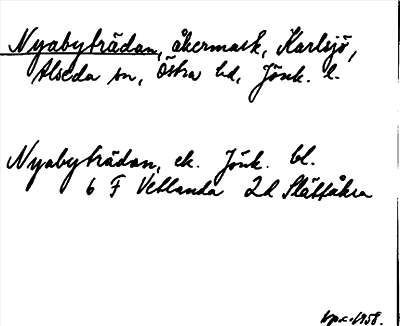 Nyabyträdan, åkermark, Karlsjö,
Alseda sn, Östra hd, Jönk. l.
Nyabyträdan, ek. Jönk. bl.
6 F Vetlanda 2d Slättåkra
1958.